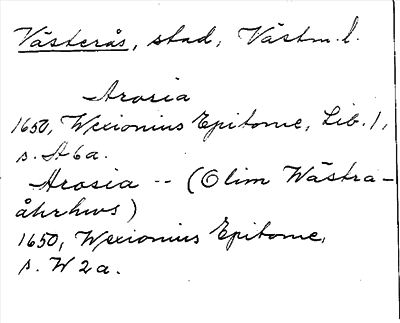 Västerås, stad, Västm. l.
Arosia
1650, Wexionius Epitome, Lib. 1,
s. A6a.
Arosia -- (Olim Wästra-
åhrhws)
1650, Wexionius Epitome,
s. W2a.